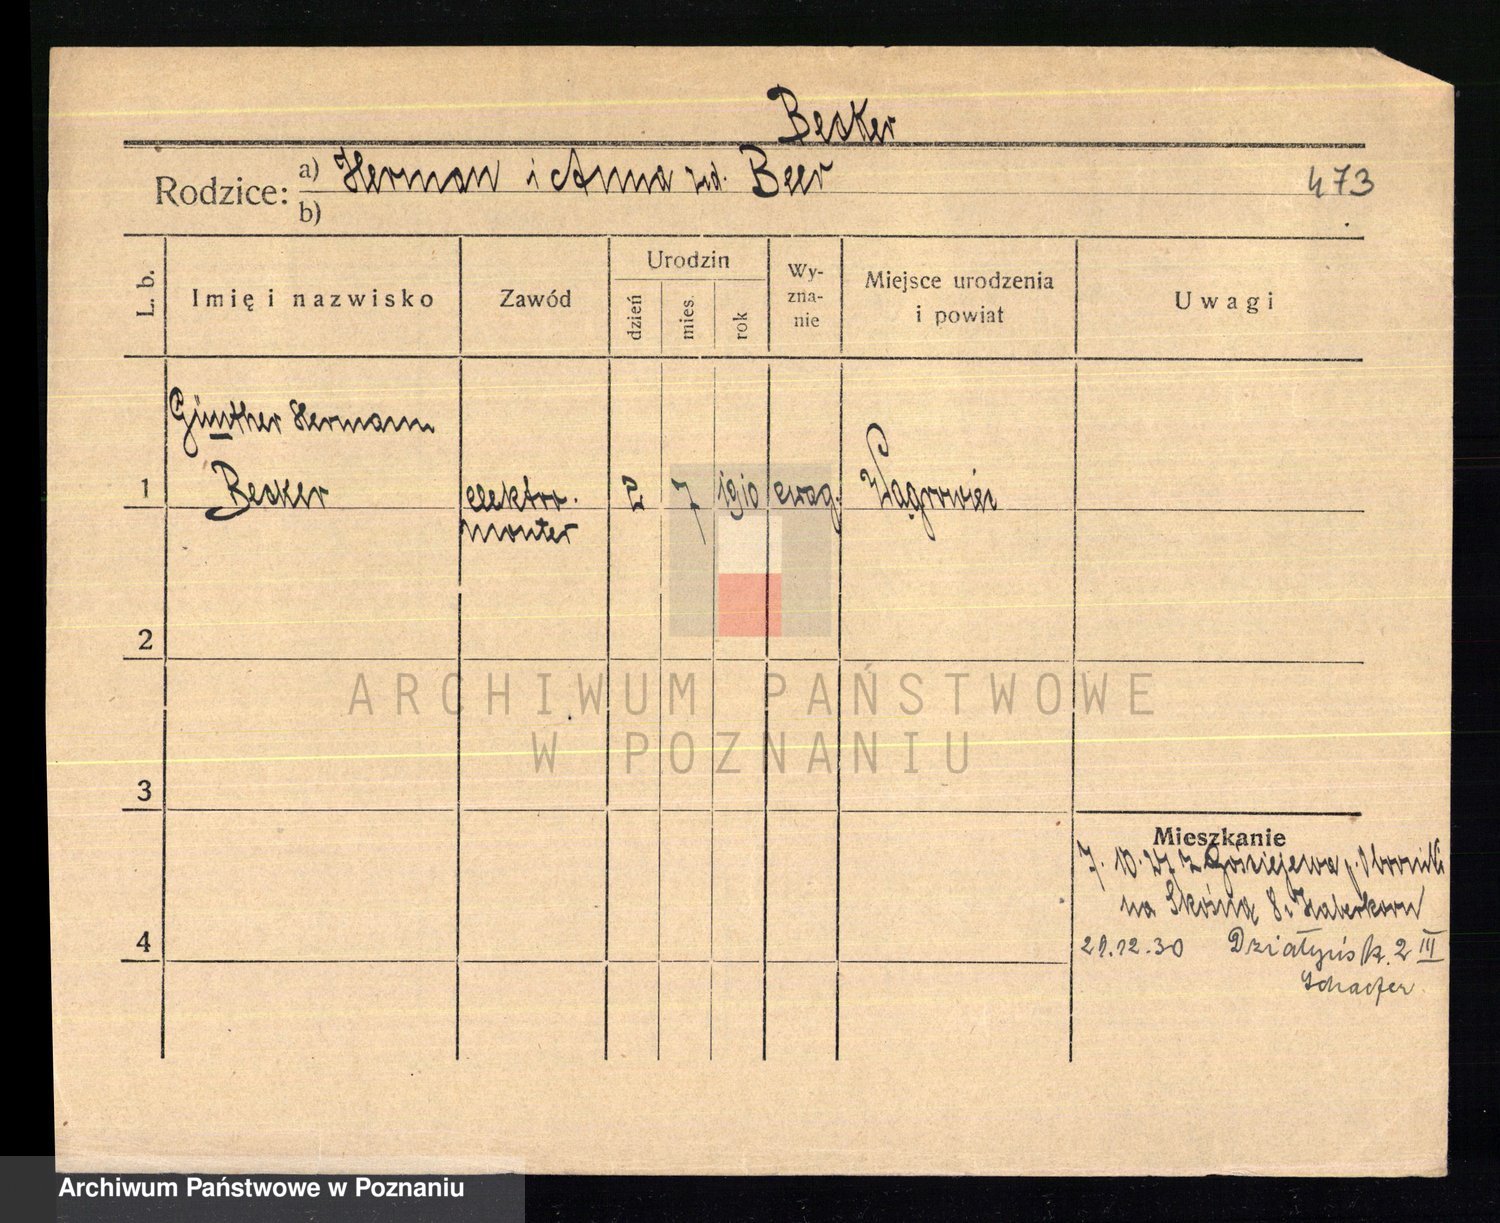 Becker
Rodzice: a) Herman i Anna zd. Beer
473
b)
L. b. Imię i nazwisko Zawód Urodzin dzień mies. rok Wy-zna-nie Miejsce urodzenia i powiat Uwagi
Günther Hermann
1 Becker elektro- 2 7 1910 ewag. Wągrowiec
monter
2
ARCHIWUM PAŃSTWOWE
W POZNANIU
3
Mieszkanie
7. 10. 27 z Gościejewa p. Oborniki
na Skośną 8 Haberkorn
4
29.12.30 Działyńsk. 2 III
Schaefer
Archiwum Państwowe w Poznaniu